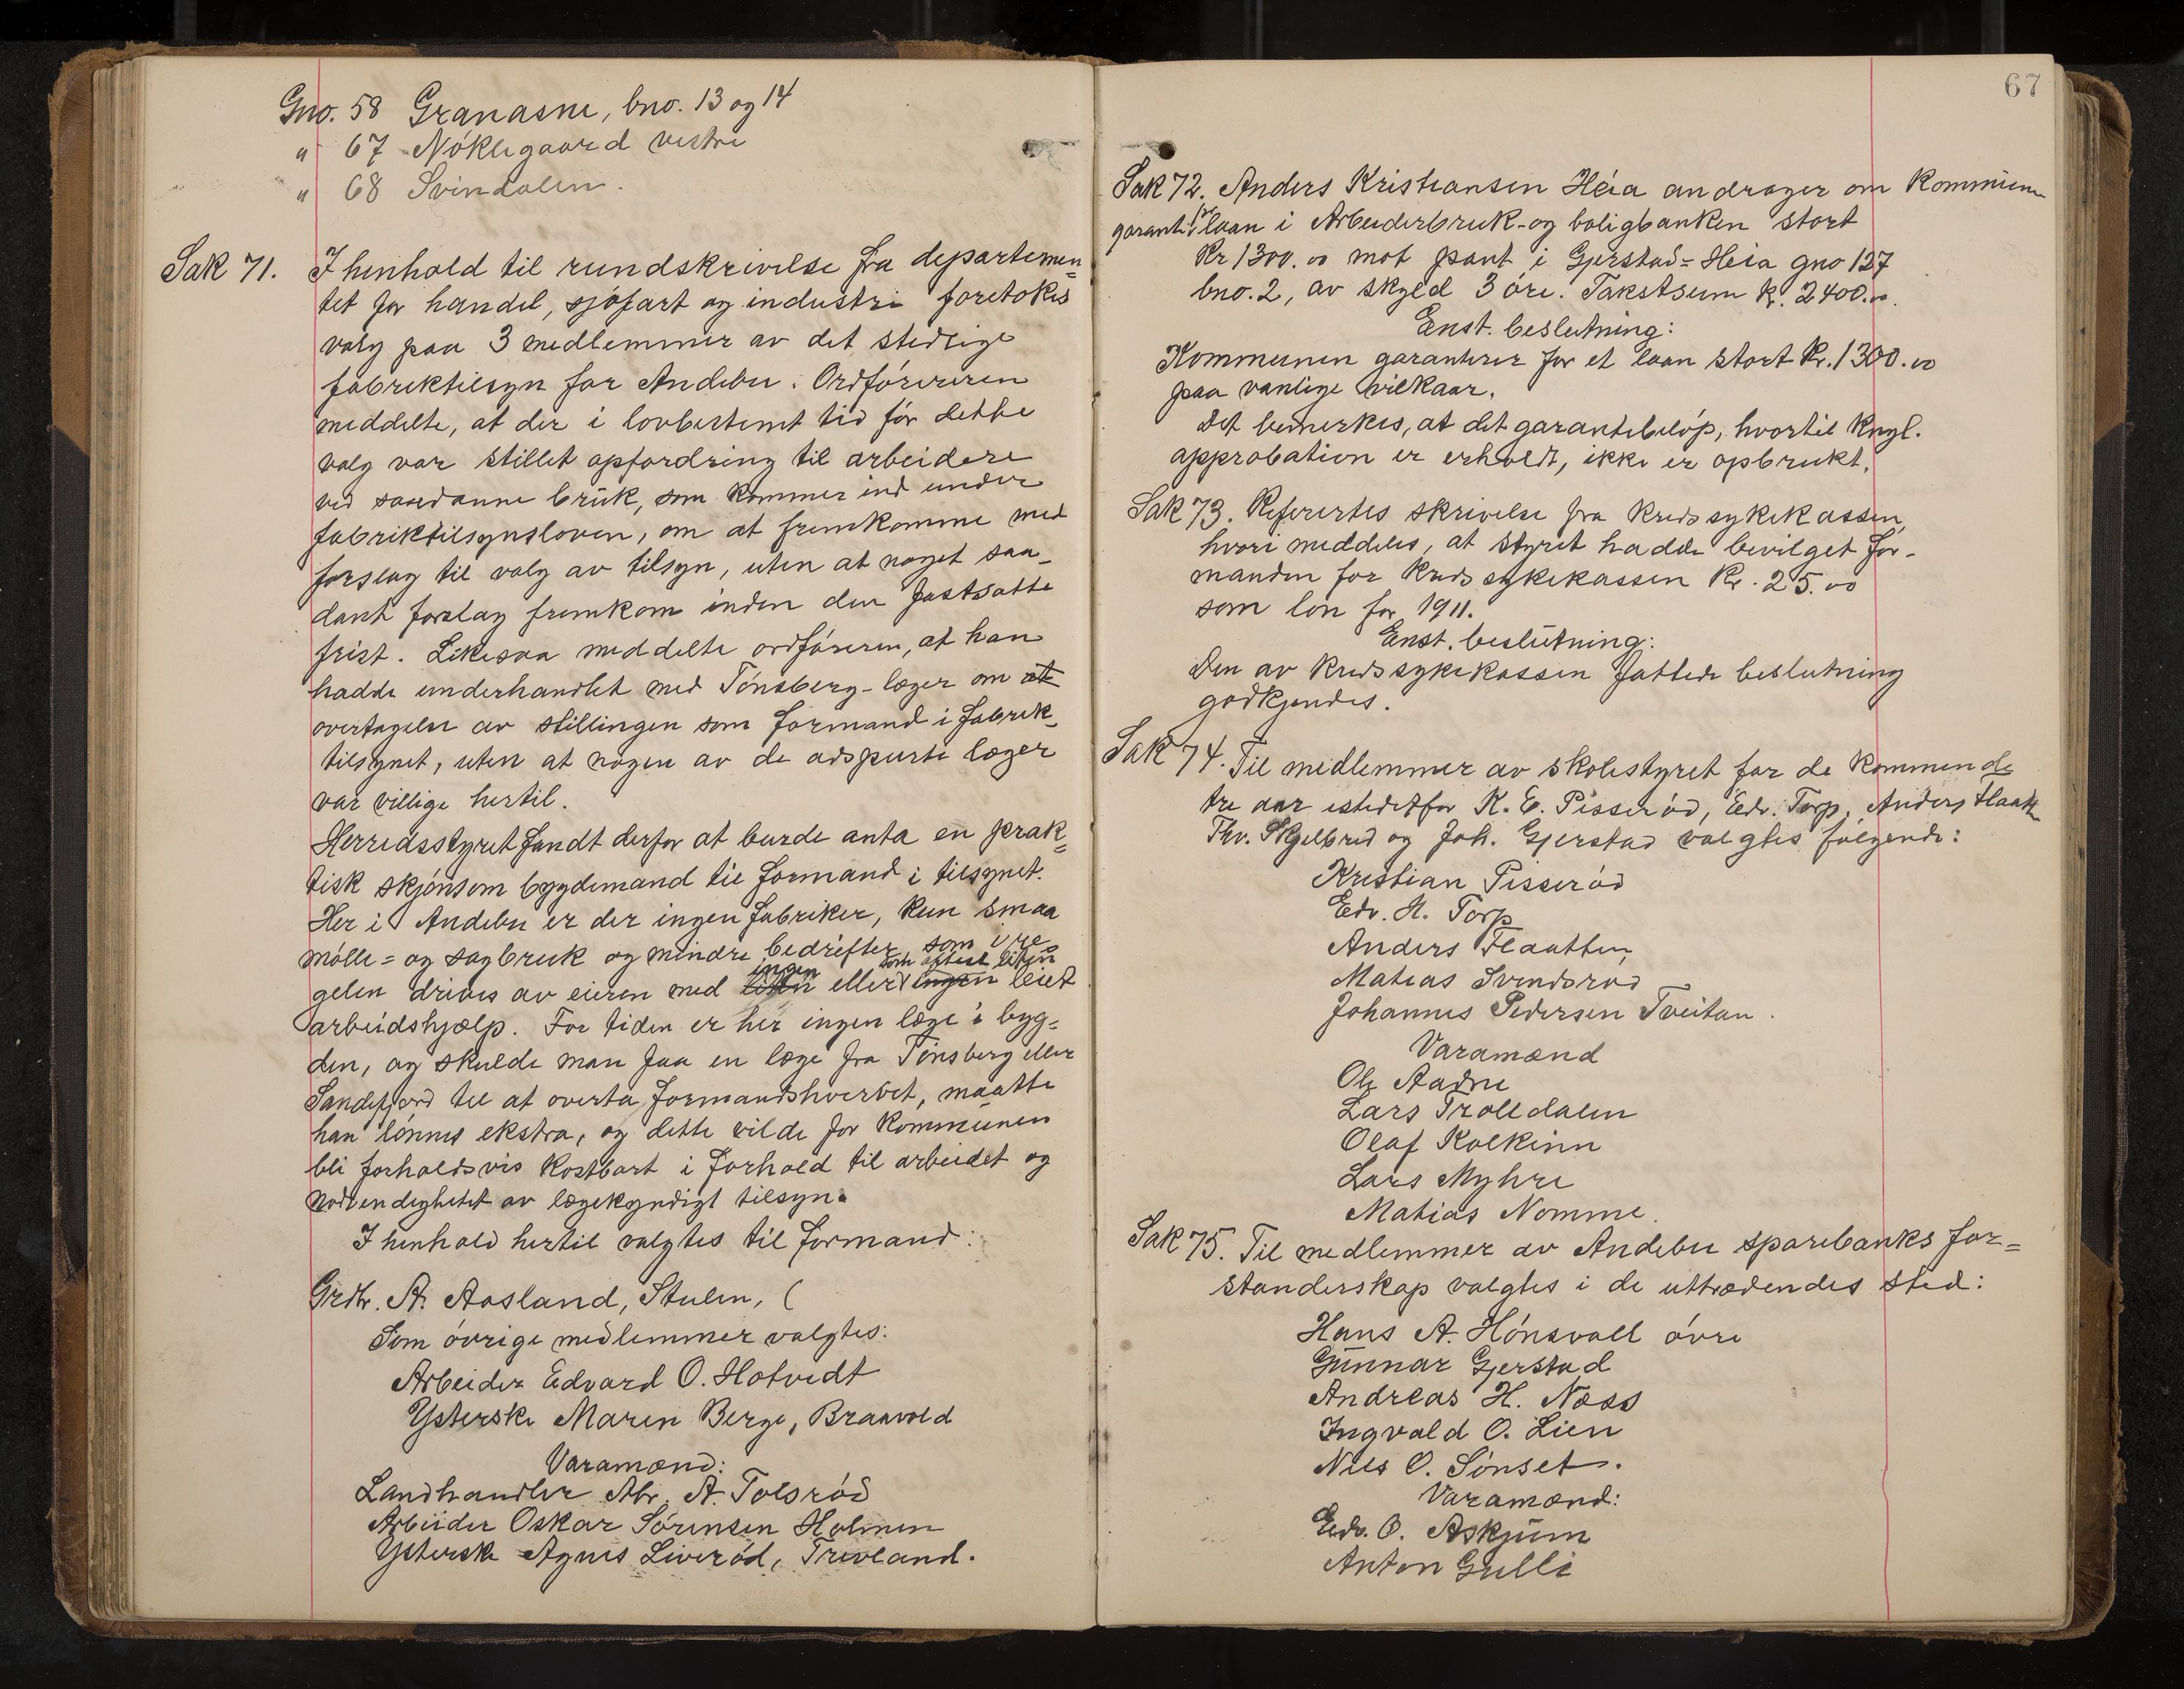 Gno. 58 Granasne, bno. 13 og 14
" 67 Nøklegaard vestre
" 68 Svindalen.
Sak 71. I henhold til rundskrivelse fra departemen=
tet for handel, sjøfart og industri foretokes
valg paa 3 medlemmer av det stedlige
fabriktilsyn for Andebu. Ordføreren
meddelte, at der i lovbestemt tid før dette
valg var stillet opfordring til arbeidere
ved saadanne bruk, som kommer ind under
fabriktilsynsloven, om at fremkomme med
forslag til valg av tilsyn, uten at noget saa-
dant forslag fremkom inden den fastsatte
frist. Likesaa meddelte ordføreren, at han
hadde underhandlet med Tønsberg-læger om at
overtagelse av stillingen som formand i fabrik-
tilsynet, uten at nogen av de adspurte læger
var villige hertil.
Herredsstyret fandt derfor at burde anta en prak=
tisk skjønsom bygdemand til formand i tilsynet.
Her i Andebu er der ingen fabriker, kun smaa
mølle= og sagbruk og mindre bedrifter, som i re=
ingen som oftest liten
gelen drives av eieren med liten eller ingen leiet
arbeidshjælp. For tiden er her ingen læge i byg=
den, og skulde man faa en læge fra Tønsberg eller
Sandefjord til at overta formandshvervet, maatte
han lønnes ekstra, og dette vilde for kommunen
bli forholdsvis kostbart i forhold til arbeidet og
nødvendigheten av lægekyndigt tilsyn.
I henhold hertil valgtes til formand:
Grdbr. A. Aasland, Stulen, (
Som øvrige medlemmer valgtes:
Arbeider Edvard O. Hotvedt
Ysterske Maren Berge, Braavold
Varamænd:
Landhandler Abr. A. Tolsrød
Arbeider Oskar Sørensen Holmen
Ysterske Agnes Liverød, Trevland.
67
Sak 72. Anders Kristiansen Heia andrager om kommune
garanti for laan i Arbeiderbruk- og boligbanken stort
Kr 1300.00 mot pant i Gjerstad=Heia gno 127
bno. 2, av skyld 3 øre. Takstsum kr. 2400.00.
Enst. beslutning:
Kommunen garanterer for et laan stort Kr. 1300.00
paa vanlige vilkaar.
Det bemerkes, at det garantibeløp, hvortil kngl.
approbation er erholdt, ikke er opbrukt.
Sak 73. Refertes skrivelse fra kredssykekassen,
hvori meddeles, at styret hadde bevilget for-
manden for kredssykekassen Kr. 25.00
som løn for 1911.
Enst. beslutning:
Den av kredssykekassen fattede beslutning
godkjendes.
Sak 74. Til medlemmer av skolestyret for de kommende
tre aar istedetfor K. E. Pisserød, Edv. Torp, Anders Flaatten
Thv. Skjelbred og Joh. Gjerstad valgtes følgende:
Kristian Pisserød
Edv. H. Torp
Anders Flaatten,
Matias Svendsrød
Johannes Pedersen Tveitan.
Varamænd
Ole Aadne
Lars Trolldalen
Olaf Kolkinn
Lars Myhre
Matias Nomme.
Sak 75. Til medlemmer av Andebu sparebanks for=
standerskap valgtes i de uttrædendes sted:
Hans A. Hønsvall øvre
Gunnar Gjerstad
Andreas H. Næss
Ingvald O. Lien
Nils O. Sønset.
Varamænd:
Edv. O. Askjum
Anton Gulli